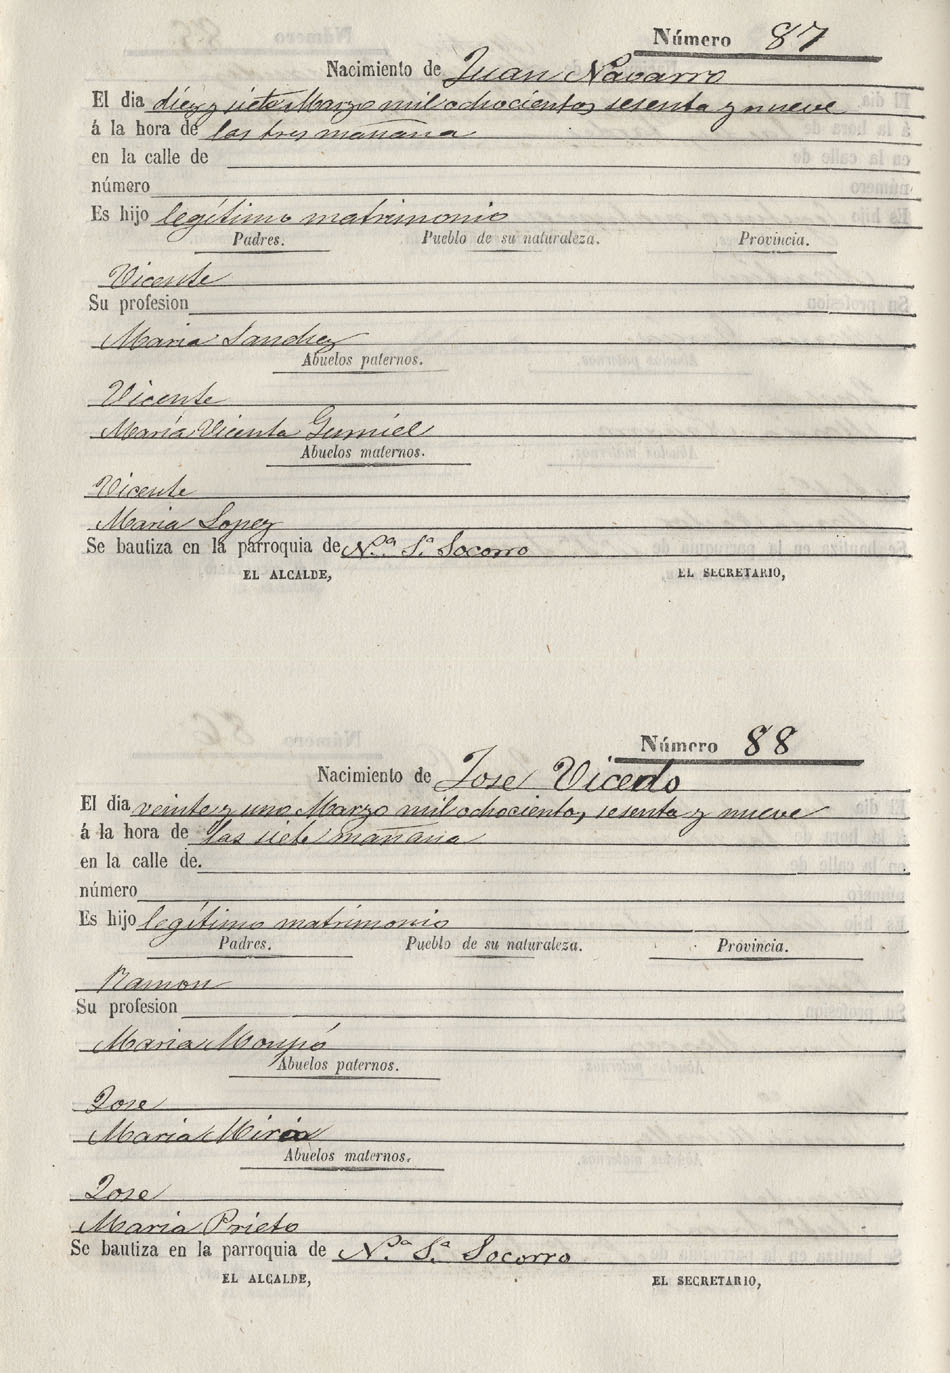 Número 87
Nacimiento de Juan Navarro
El dia diez y siete Marzo mil ochocientos sesenta y nueve
á la hora de las tres mañana
en la calle de
número
Es hijo legítimo matrimonio
Padres. Pueblo de su naturaleza. Provincia.
Vicente
Su profesion
Maria Sanchez
Abuelos paternos.
Vicente
María Vicenta Gumiel
Abuelos maternos.
Vicente
Maria Lopez
Se bautiza en la parroquia de N.ª S.ª Socorro
EL ALCALDE, EL SECRETARIO,
Número 88
Nacimiento de Jose Vicedo
El dia veinte y uno Marzo mil ochocientos sesenta y nueve
á la hora de las siete mañana
en la calle de.
número
Es hijo legítimo matrimonio
Padres. Pueblo de su naturaleza. Provincia.
Ramon
Su profesion
Maria
Abuelos paternos.
Jose
Maria
Abuelos maternos.
Jose
Maria Prieto
Se bautiza en la parroquia de N.ª S.ª Socorro
EL ALCALDE, EL SECRETARIO,